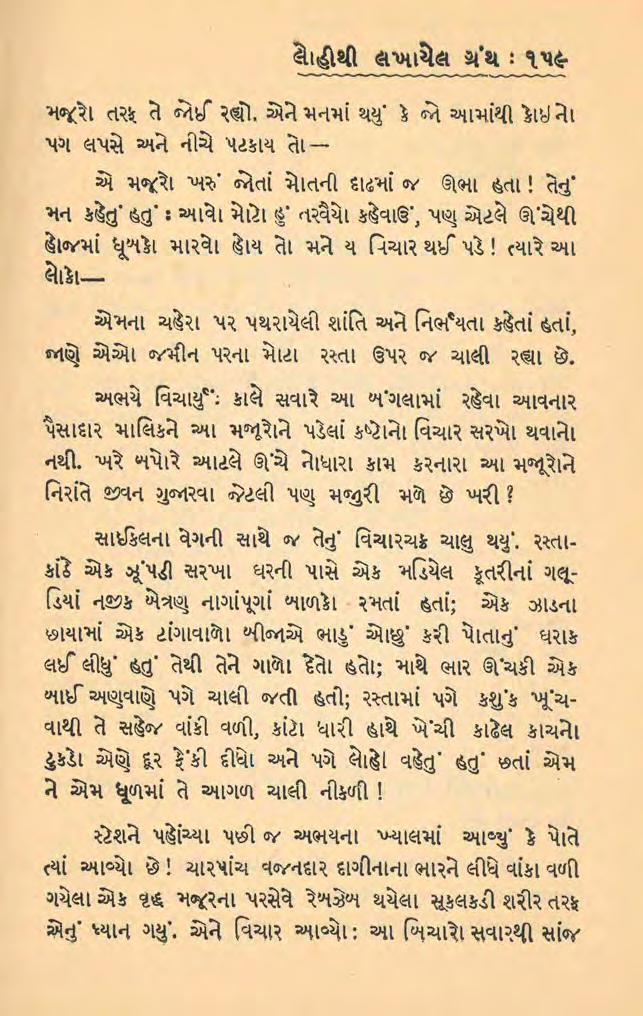 લોહીથી લખાયેલ ગ્રંથ : ૧૫૯
મજૂરો તરફ તે જોઈ રહ્યો. એને મનમાં થયું કે જો આમાંથી કોઇનો
પગ લપસે અને નીચે પટકાય તો—
એ મજૂરો ખરું જોતાં મોતની દાઢમાં જ ઊભા હતા! તેનું
મન કહેતું હતું : આવો મોટો હું તરવૈયો કહેવાઉં, પણ એટલે ઊંચેથી
હોજમાં ધૂબકો મારવો હોય તો મને ય વિચાર થઈ પડે! ત્યારે આ
લોકો—
એમના ચહેરા પર પથરાયેલી શાંતિ અને નિર્ભયતા કહેતાં હતાં,
જાણે એઓ જમીન પરના મોટા રસ્તા ઉપર જ ચાલી રહ્યા છે.
અભયે વિચાર્યું: કાલે સવારે આ બંગલામાં રહેવા આવનાર
પૈસાદાર માલિકને આ મજૂરોને પડેલાં કષ્ટોનો વિચાર સરખો થવાનો
નથી. ખરે બપોરે આટલે ઊંચે નોધારા કામ કરનારા આ મજૂરોને
નિરાંતે જીવન ગુજારવા જેટલી પણ મજુરી મળે છે ખરી?
સાઈકલના વેગની સાથે જ તેનું વિચારચક્ર ચાલુ થયું. રસ્તા-
કાંઠે એક ઝૂંપડી સરખા ઘરની પાસે એક મડિયેલ કૂતરીનાં ગલૂ-
ડિયાં નજીક બેત્રણ નાગાંપૂગાં બાળકો રમતાં હતાં; એક ઝાડના
છાયામાં એક ટાંગાવાળો બીજાએ ભાડું ઓછું કરી પોતાનું ઘરાક
લઈ લીધું હતું તેથી તેને ગાળો દેતો હતો; માથે ભાર ઊંચકી એક
બાઈ અણુવાણે પગે ચાલી જતી હતી; રસ્તામાં પગે કશુંક ખૂંચ-
વાથી તે સહેજ વાંકી વળી, કાંટો ધારી હાથે ખેંચી કાઢેલ કાચનો
ટુકડો એણે દૂર ફેંકી દીધો અને પગે લોહી વહેતું હતું છતાં એમ
ને એમ ધૂળમાં તે આગળ ચાલી નીકળી!
સ્ટેશને પહોંચ્યા પછી જ અભયના ખ્યાલમાં આવ્યું કે પોતે
ત્યાં આવ્યો છે! ચારપાંચ વજનદાર દાગીનાના ભારને લીધે વાંકા વળી
ગયેલા એક વૃદ્ધ મજૂરના પરસેવે રેબઝેબ થયેલા સૂકલકડી શરીર તરફ
એનું ધ્યાન ગયું. એને વિચાર આવ્યો: આ બિચારો સવારથી સાંજ